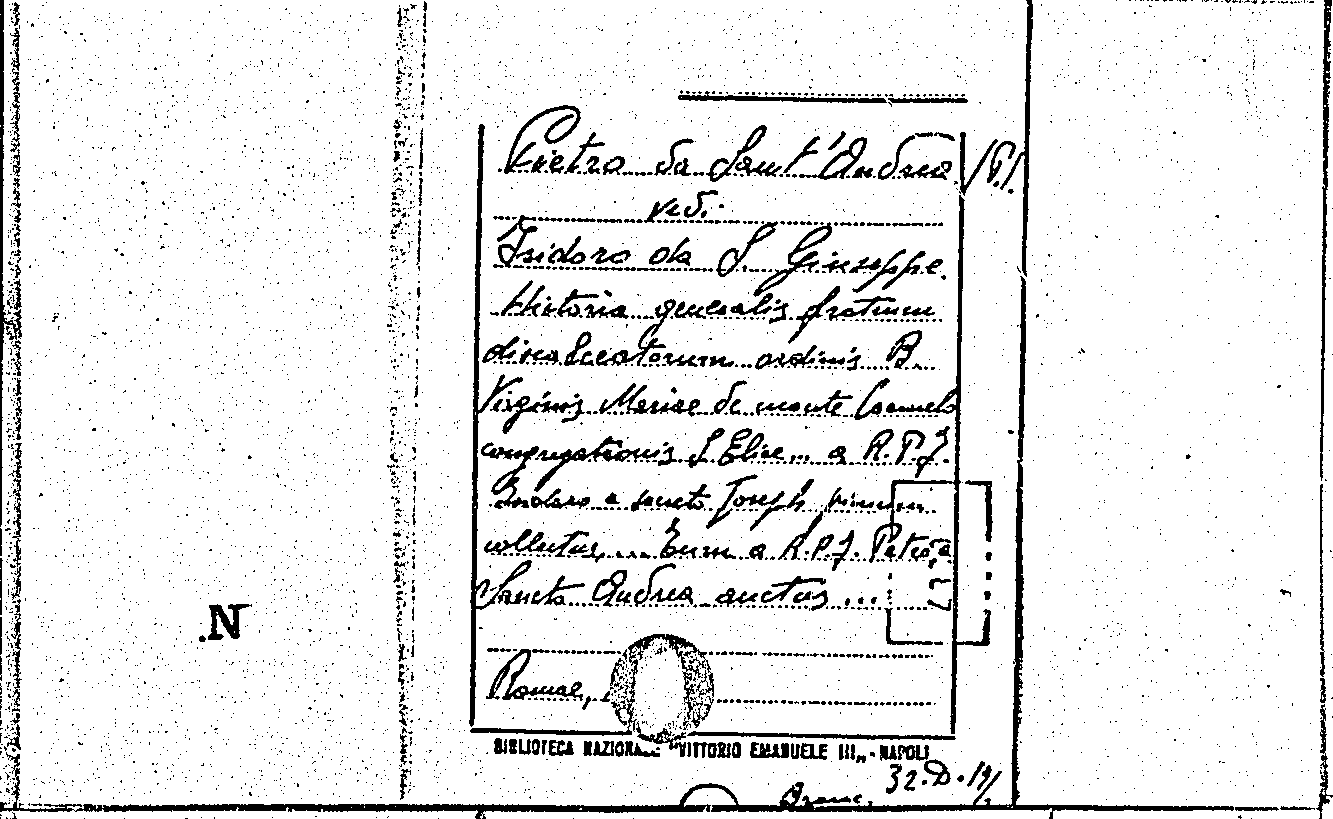 Pietro da Sant'Andrea /P./
vedi
Isidoro da S. Giuseppe.
Historia generalis fratrum
discalceatorum ordinis B.
Virginis Mariae de monte Carmelo
congregationis S. Eliae... a R.P.F.
Isidoro a sancto Joseph primum
collectus, ... Eum a R.P.F. Petro a
Sancto Andrea auctus ...
Romae,
BIBLIOTECA NAZIONALE "VITTORIO EMANUELE III„ - NAPOLI
32.D.14/
.N